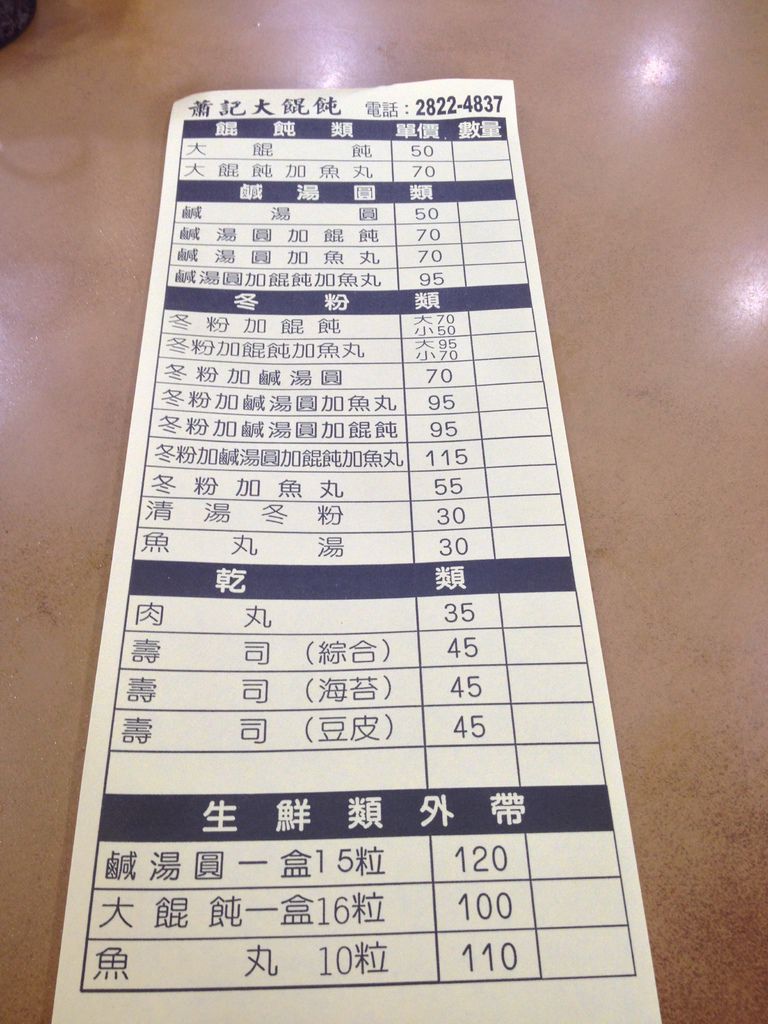 蕭記大餛飩 電話：2822-4837
餛飩類 單價 數量
大餛飩 50
大餛飩加魚丸 70
鹹湯圓類
鹹湯圓 50
鹹湯圓加餛飩 70
鹹湯圓加魚丸 70
鹹湯圓加餛飩加魚丸 95
冬粉類
冬粉加餛飩 大70 小50
冬粉加餛飩加魚丸 大95 小70
冬粉加鹹湯圓 70
冬粉加鹹湯圓加魚丸 95
冬粉加鹹湯圓加餛飩 95
冬粉加鹹湯圓加餛飩加魚丸 115
冬粉加魚丸 55
清湯冬粉 30
魚丸湯 30
乾類
肉丸 35
壽司（綜合） 45
壽司（海苔） 45
壽司（豆皮） 45
生鮮類外帶
鹹湯圓一盒15粒 120
大餛飩一盒16粒 100
魚丸 10粒 110